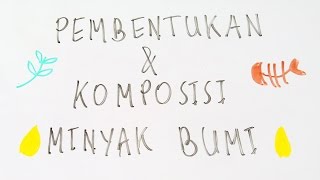 PEMBENTUKAN
&
KOMPOSISI
MINYAK BUMI